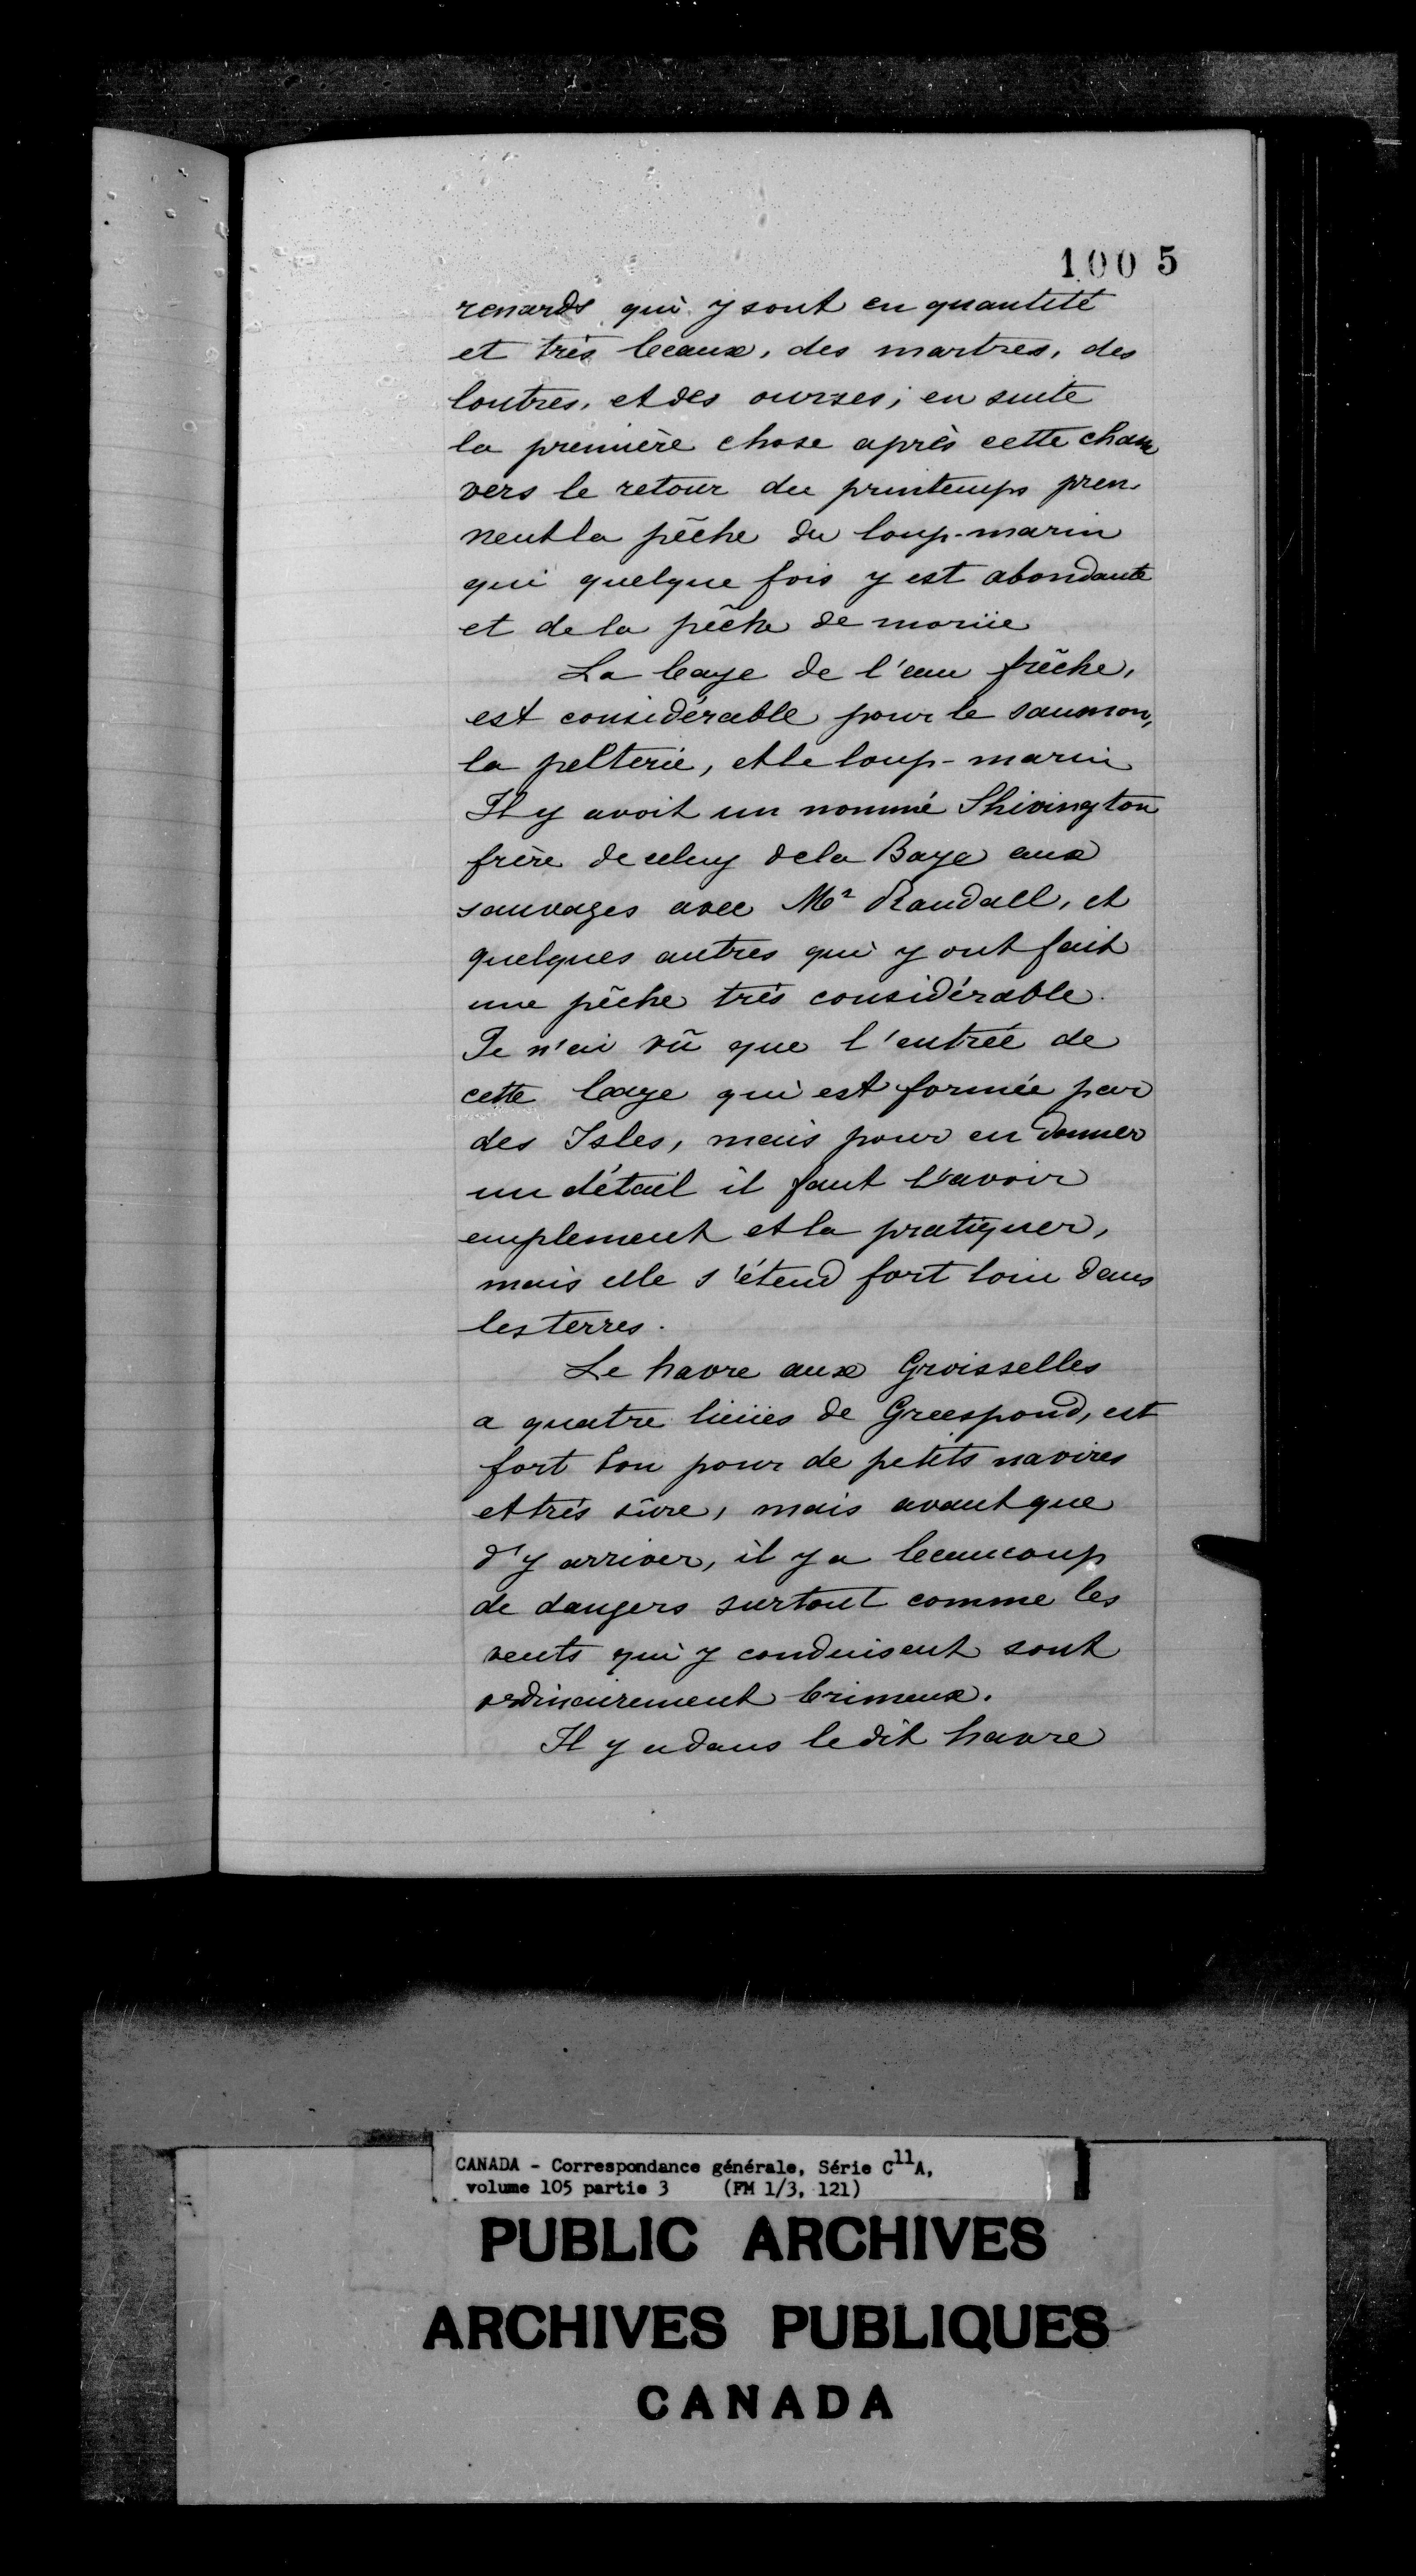 100 5
renards qui y sont en quantité
et très beaux, des martres, des
loutres, et des ourses; en suite
la première chose après cette chasse
vers le retour du printemps pren-
nent la pêche du loup-marin
qui quelque fois y est abondante
et de la pêche de moriie
La baye de l'eau frêche,
est considérable pour le saumon,
la pelterie, et le loup-marin
Il y avoit un nommé Shivington
frère de celuy de la Baye aux
sauvages avec Mr Randall, et
quelques autres qui y ont fait
une pêche très considérable.
Je n'ai vû que l'entrée de
cette baye qui est formée par
des Isles, mais pour en donner
un détail il faut l'avoir
emplement et la pratiquer,
mais elle s'étend fort loin dans
les terres.
Le havre aux Groisselles
a quatre lieües de Greespond, est
fort bon pour de petits navires
et très sûre, mais avant que
d'y arriver, il y a beaucoup
de dangers surtout comme les
vents qui y conduisent sont
ordinairement brimeux.
Il y a dans le dit havre
CANADA - Correspondance générale, Série C11A,
volume 105 partie 3 (FM 1/3, 121)
PUBLIC ARCHIVES
ARCHIVES PUBLIQUES
CANADA